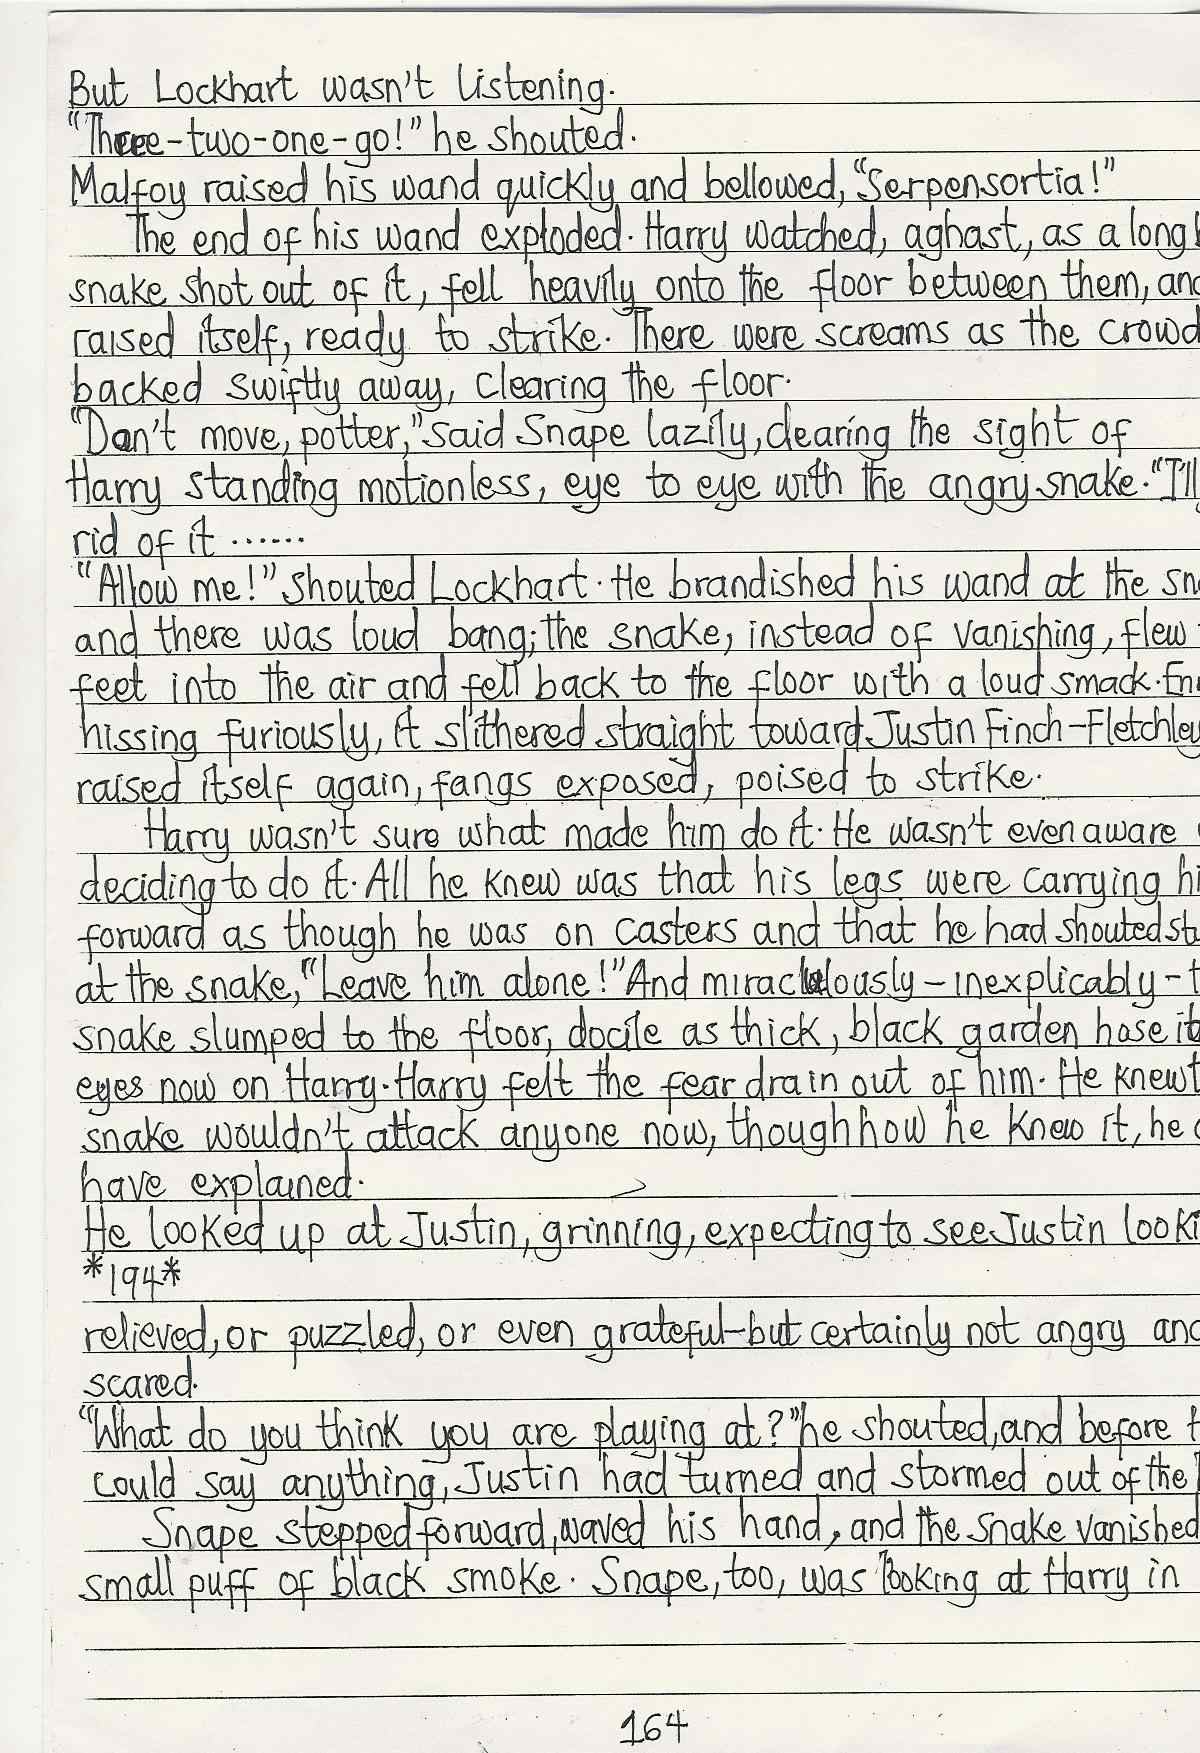 But Lockhart wasn't listening.
"Three-two-one-go!" he shouted.
Malfoy raised his wand quickly and bellowed, "Serpensortia!"
The end of his wand exploded. Harry watched, aghast, as a long
snake shot out of it, fell heavily onto the floor between them, and
raised itself, ready to strike. There were screams as the crowd
backed swiftly away, clearing the floor.
"Don't move, potter," said Snape lazily, clearing the sight of
Harry standing motionless, eye to eye with the angry snake. "I'll
rid of it ......
"Allow me!" shouted Lockhart. He brandished his wand at the sn
and there was loud bang; the snake, instead of vanishing, flew
feet into the air and fell back to the floor with a loud smack. En
hissing furiously, it slithered straight toward Justin Finch-Fletchley
raised itself again, fangs exposed, poised to strike.
Harry wasn't sure what made him do it. He wasn't even aware
deciding to do it. All he knew was that his legs were carrying hi
forward as though he was on casters and that he had shouted stu
at the snake, "Leave him alone!" And miraculously - inexplicably - t
snake slumped to the floor, docile as thick, black garden hose it
eyes now on Harry. Harry felt the fear drain out of him. He knew t
snake wouldn't attack anyone now, though how he knew it, he c
have explained.
He looked up at Justin, grinning, expecting to see Justin looki
*194*
relieved, or puzzled, or even grateful-but certainly not angry and
scared.
"What do you think you are playing at?" he shouted, and before
could say anything, Justin had turned and stormed out of the
Snape stepped forward, waved his hand, and the snake vanished
small puff of black smoke. Snape, too, was looking at Harry in
164